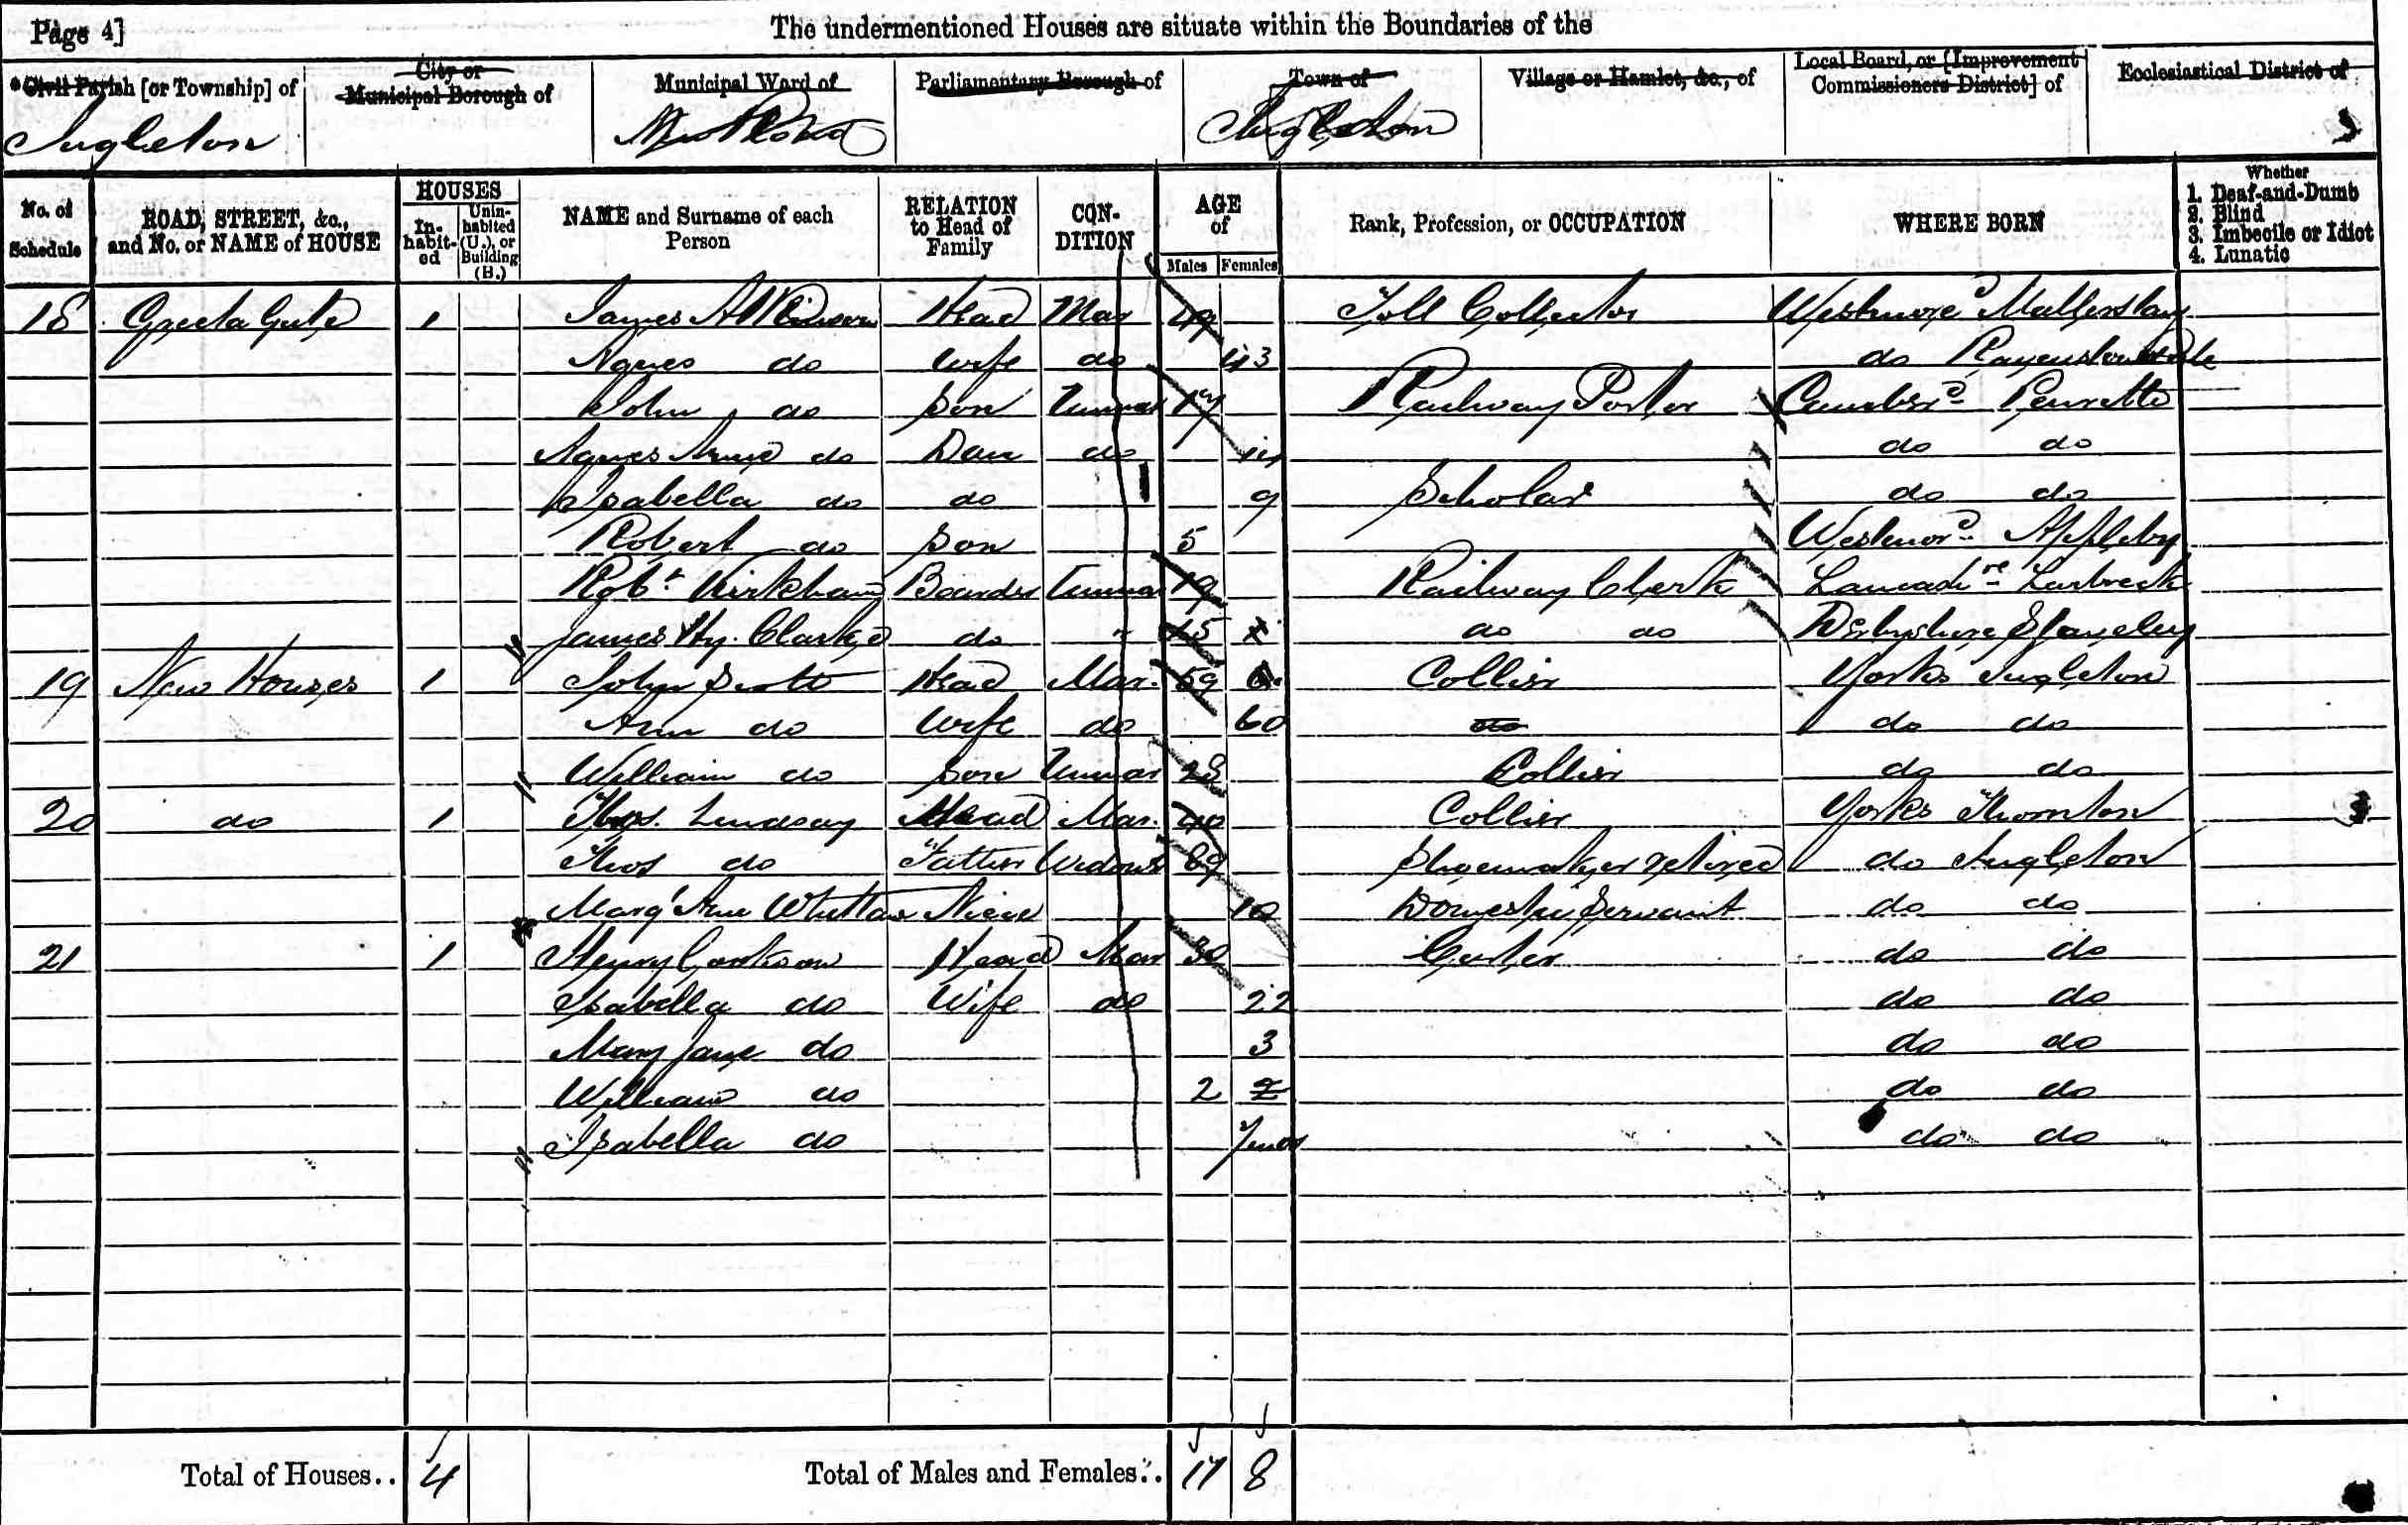 Page 4]
The undermentioned Houses are situate within the Boundaries of the
*Civil Parish [or Township] of City or Municipal Borough of Municipal Ward of Parliamentary Borough of Town of Village or Hamlet, &c., of Local Board, or [Improvement Commissioners District] of Ecclesiastical District of
Ingleton Ingleton
No. of Schedule ROAD, STREET, &c., and No. or NAME of HOUSE HOUSES Inhabited Uninhabited (U.), or Building (B.) NAME and Surname of each Person RELATION to Head of Family CONDITION AGE of Males Females Rank, Profession, or OCCUPATION WHERE BORN Whether 1. Deaf-and-Dumb 2. Blind 3. Imbecile or Idiot 4. Lunatic
18 Greeta Gate 1 James Atkinson Head Mar 49 Toll Collector Westmord Mallerstang
Agnes do Wife do 43 do Ravenstonedale
John do Son Unmar 17 Railway Porter Cumberd Penrith
Agnes Anne do Dau do 14 do do
Isabella do do 9 Scholar do do
Robert do Son 5 Westmord Appleby
Robt Kirkham Boarder Unmar 19 Railway Clerk Lancashre Larbreck
James Hy. Clarke do " 15 do do Derbyshire Staveley
19 New Houses 1 John Scott Head Mar. 59 Collier Yorks Ingleton
Ann do Wife do 60 do do do
William do Son Unmar 28 Collier do do
20 do 1 Thos. Lindsay Head Mar. 40 Collier Yorks Thornton
Thos do Father Widowr 89 Shoemaker retired do Ingleton
Margt Ann Niece 10 Domestic Servant do do
21 1 Henry Head Mar 30 Carter do do
Isabella do Wife do 22 do do
Mary Jane do 3 do do
William do 2 2 do do
Isabella do 7mos do do
Total of Houses.. 4 Total of Males and Females.. 11 8